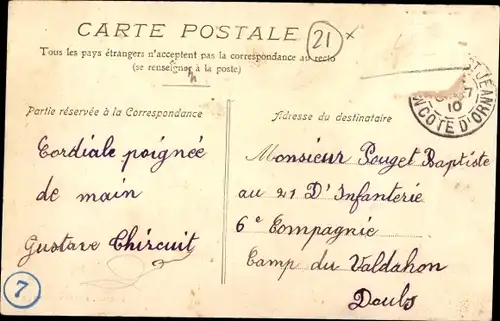 CARTE POSTALE
21
Tous les pays étrangers n'acceptent pas la correspondance au recto
(se renseigner à la poste)
Partie réservée à la Correspondance
Adresse du destinataire
ST JEAN
10
CÔTE D'OR
Cordiale poignée
de main
Gustave Chircuit
Monsieur Pouget Baptiste
au 21 D'Infanterie
6e Compagnie
Camp du Valdahon
Doubs
7